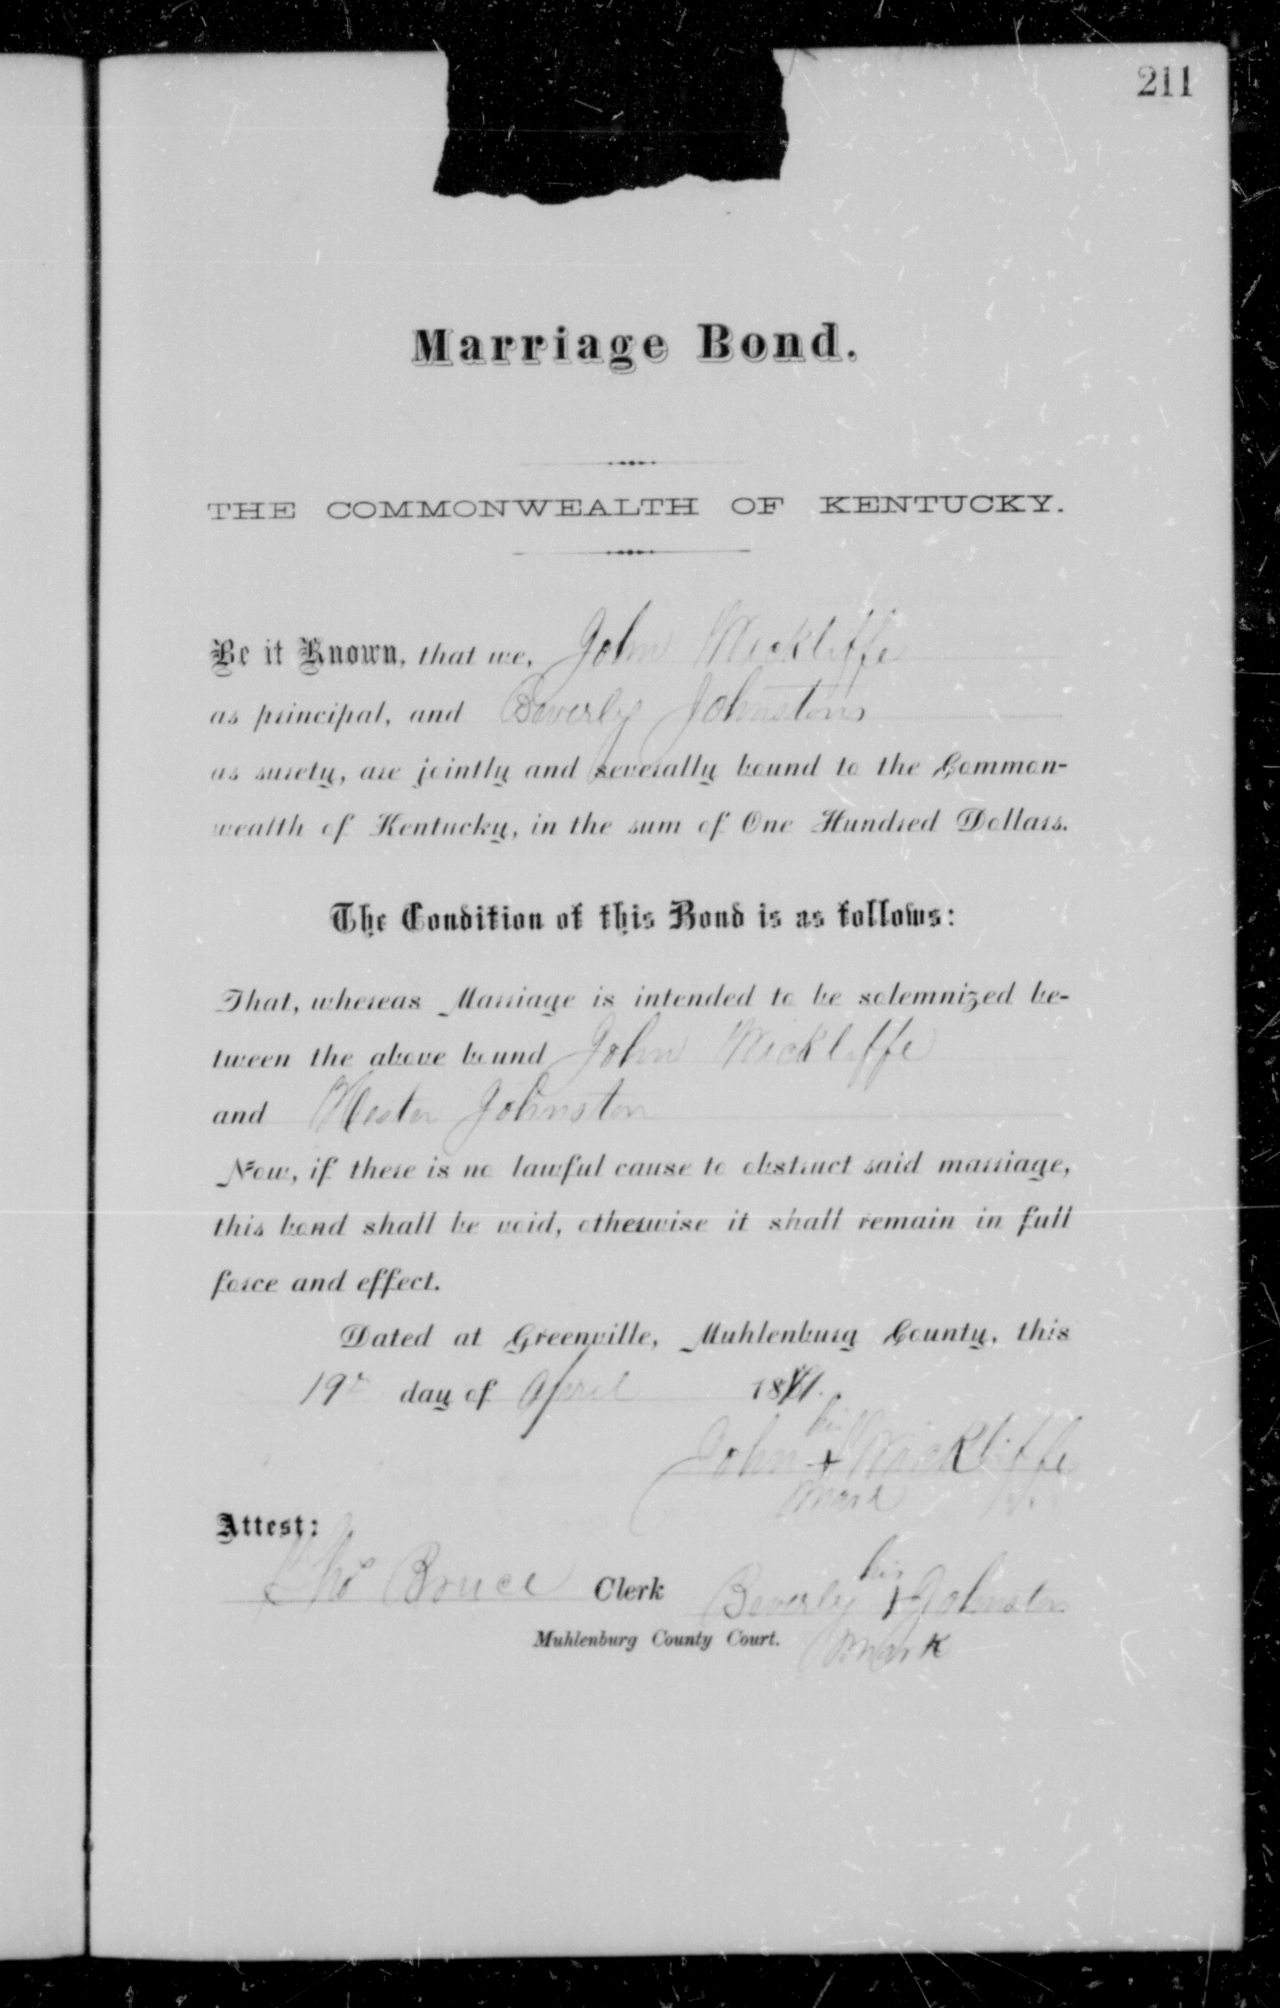 211
Marriage Bond.
THE COMMONWEALTH OF KENTUCKY.
Be it Known, that we, John Wickliffe
as principal, and Beverly Johnston
as surety, are jointly and severally bound to the Common-
wealth of Kentucky, in the sum of One Hundred Dollars.
The Condition of this Bond is as follows:
That, whereas Marriage is intended to be solemnized be-
tween the above bound John Wickliffe
and Hester Johnston
Now, if there is no lawful cause to obstruct said marriage,
this bond shall be void, otherwise it shall remain in full
force and effect.
Dated at Greenville, Muhlenburg County, this
19th day of April
his
John + Wickliffe
mark
Attest:
Tho Bruce Clerk
his
Beverly + Johnston
Muhlenburg County Court.
mark